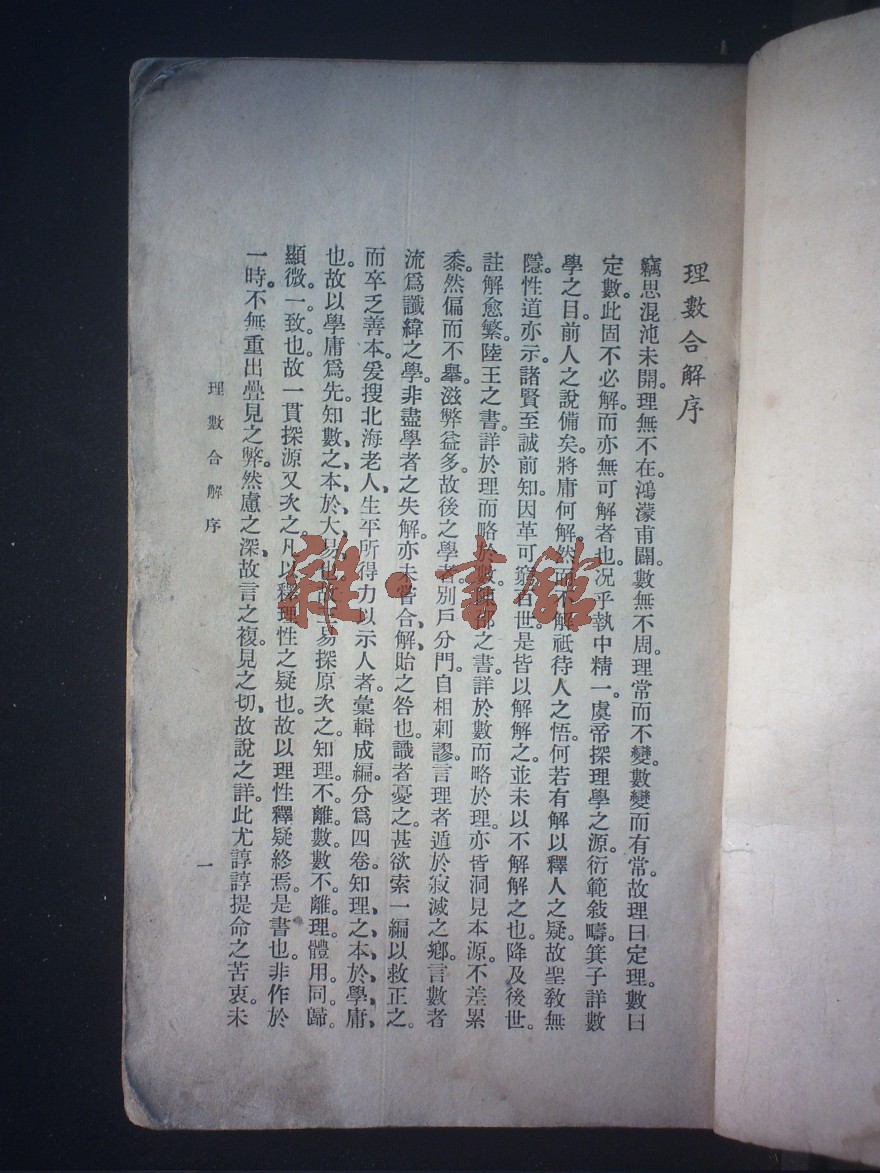 理數合解序
竊思混沌未開。理無不在。鴻濛甫闢。數無不周。理常而不變。數變而有常。故理曰定理。數曰
定數。此固不必解。而亦無可解者也。况乎執中精一。虞帝探理學之源。衍範敍疇。箕子詳數
學之目。前人之說備矣。將庸何解。然而不解祇待人之悟。何若有解以釋人之疑。故聖教無
隱。性道亦示。諸賢至誠前知。因革可窮百世。是皆以解解之。並未以不解解之也。降及後世。
註解愈繁。陸王之書。詳於理而略於數。邵之書。詳於數而略於理。亦皆洞見本源。不差累
黍。然偏而不舉。滋弊益多。故後之學者。別戶分門。自相刺謬。言理者遁於寂滅之鄉。言數者
流爲讖緯之學。非盡學者之失解。亦未嘗合解貽之咎也。識者憂之。甚欲索一編以救正之。
而卒乏善本。爰搜北海老人生平所得力以示人者。彙輯成編。分爲四卷。知理之本於學庸
也。故以學庸爲先。知數之本於大易也。故易探原次之。知理不離數。數不離理。體用同歸。
顯微一致也。故一貫探源又次之。凡以釋理性之疑也。故以理性釋疑終焉。是書也。非作於
一時。不無重出疊見之弊。然慮之深。故言之複。見之切。故說之詳。此尤諄諄提命之苦衷。未
理數合解序
一
雜·書館